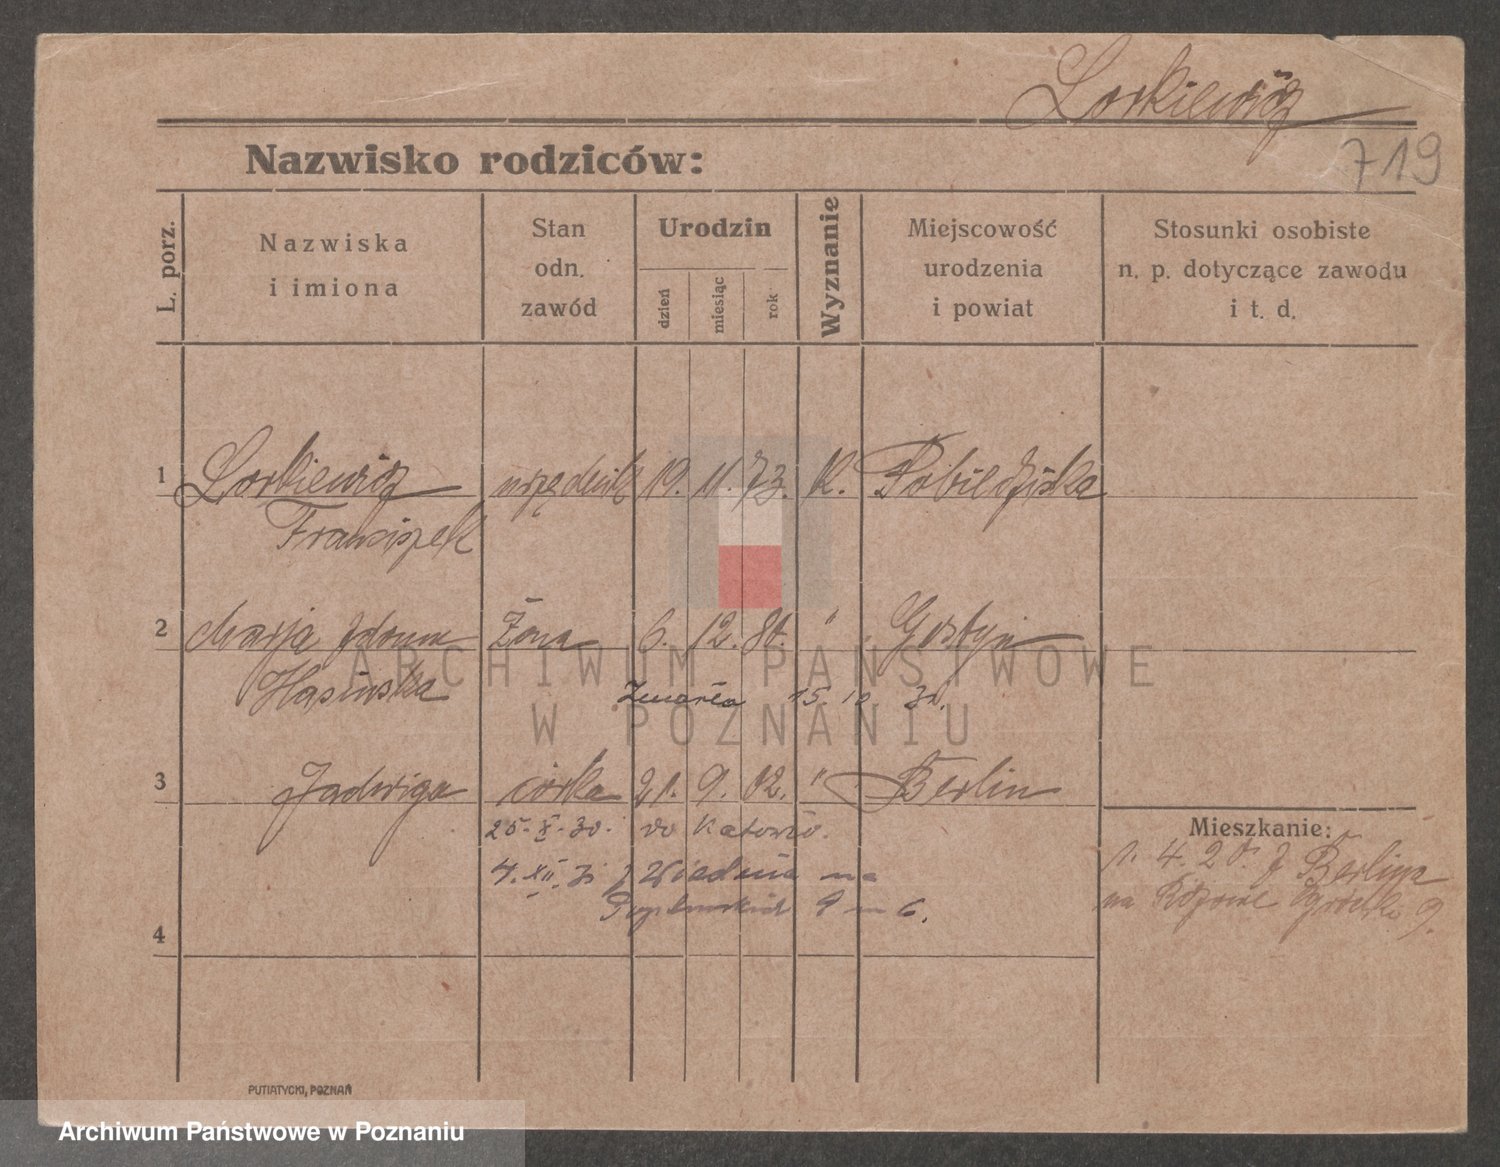 Lorkiewicz
719
Nazwisko rodziców:
L. porz.
Nazwiska
i imiona
Stan
odn.
zawód
Urodzin
dzień
miesiąc
rok
Wyznanie
Miejscowość
urodzenia
i powiat
Stosunki osobiste
n. p. dotyczące zawodu
i t. d.
1 Lorkiewicz urzędnik 19. 11. 73. K. Pobiedziska
Franciszek
2 Marja Żona 6. 12. " Gostyń
Zmarła 15. 10
3 Jadwiga córka 21. 9. 02. " Berlin
25. X. 30. do Katowic.
4. XII. z Wiednia na
9 m 6.
4
Mieszkanie:
1. 4. 20. z Berlina
na 9.
ARCHIWUM PAŃSTWOWE
W POZNANIU
PUTIATYCKI, POZNAŃ
Archiwum Państwowe w Poznaniu